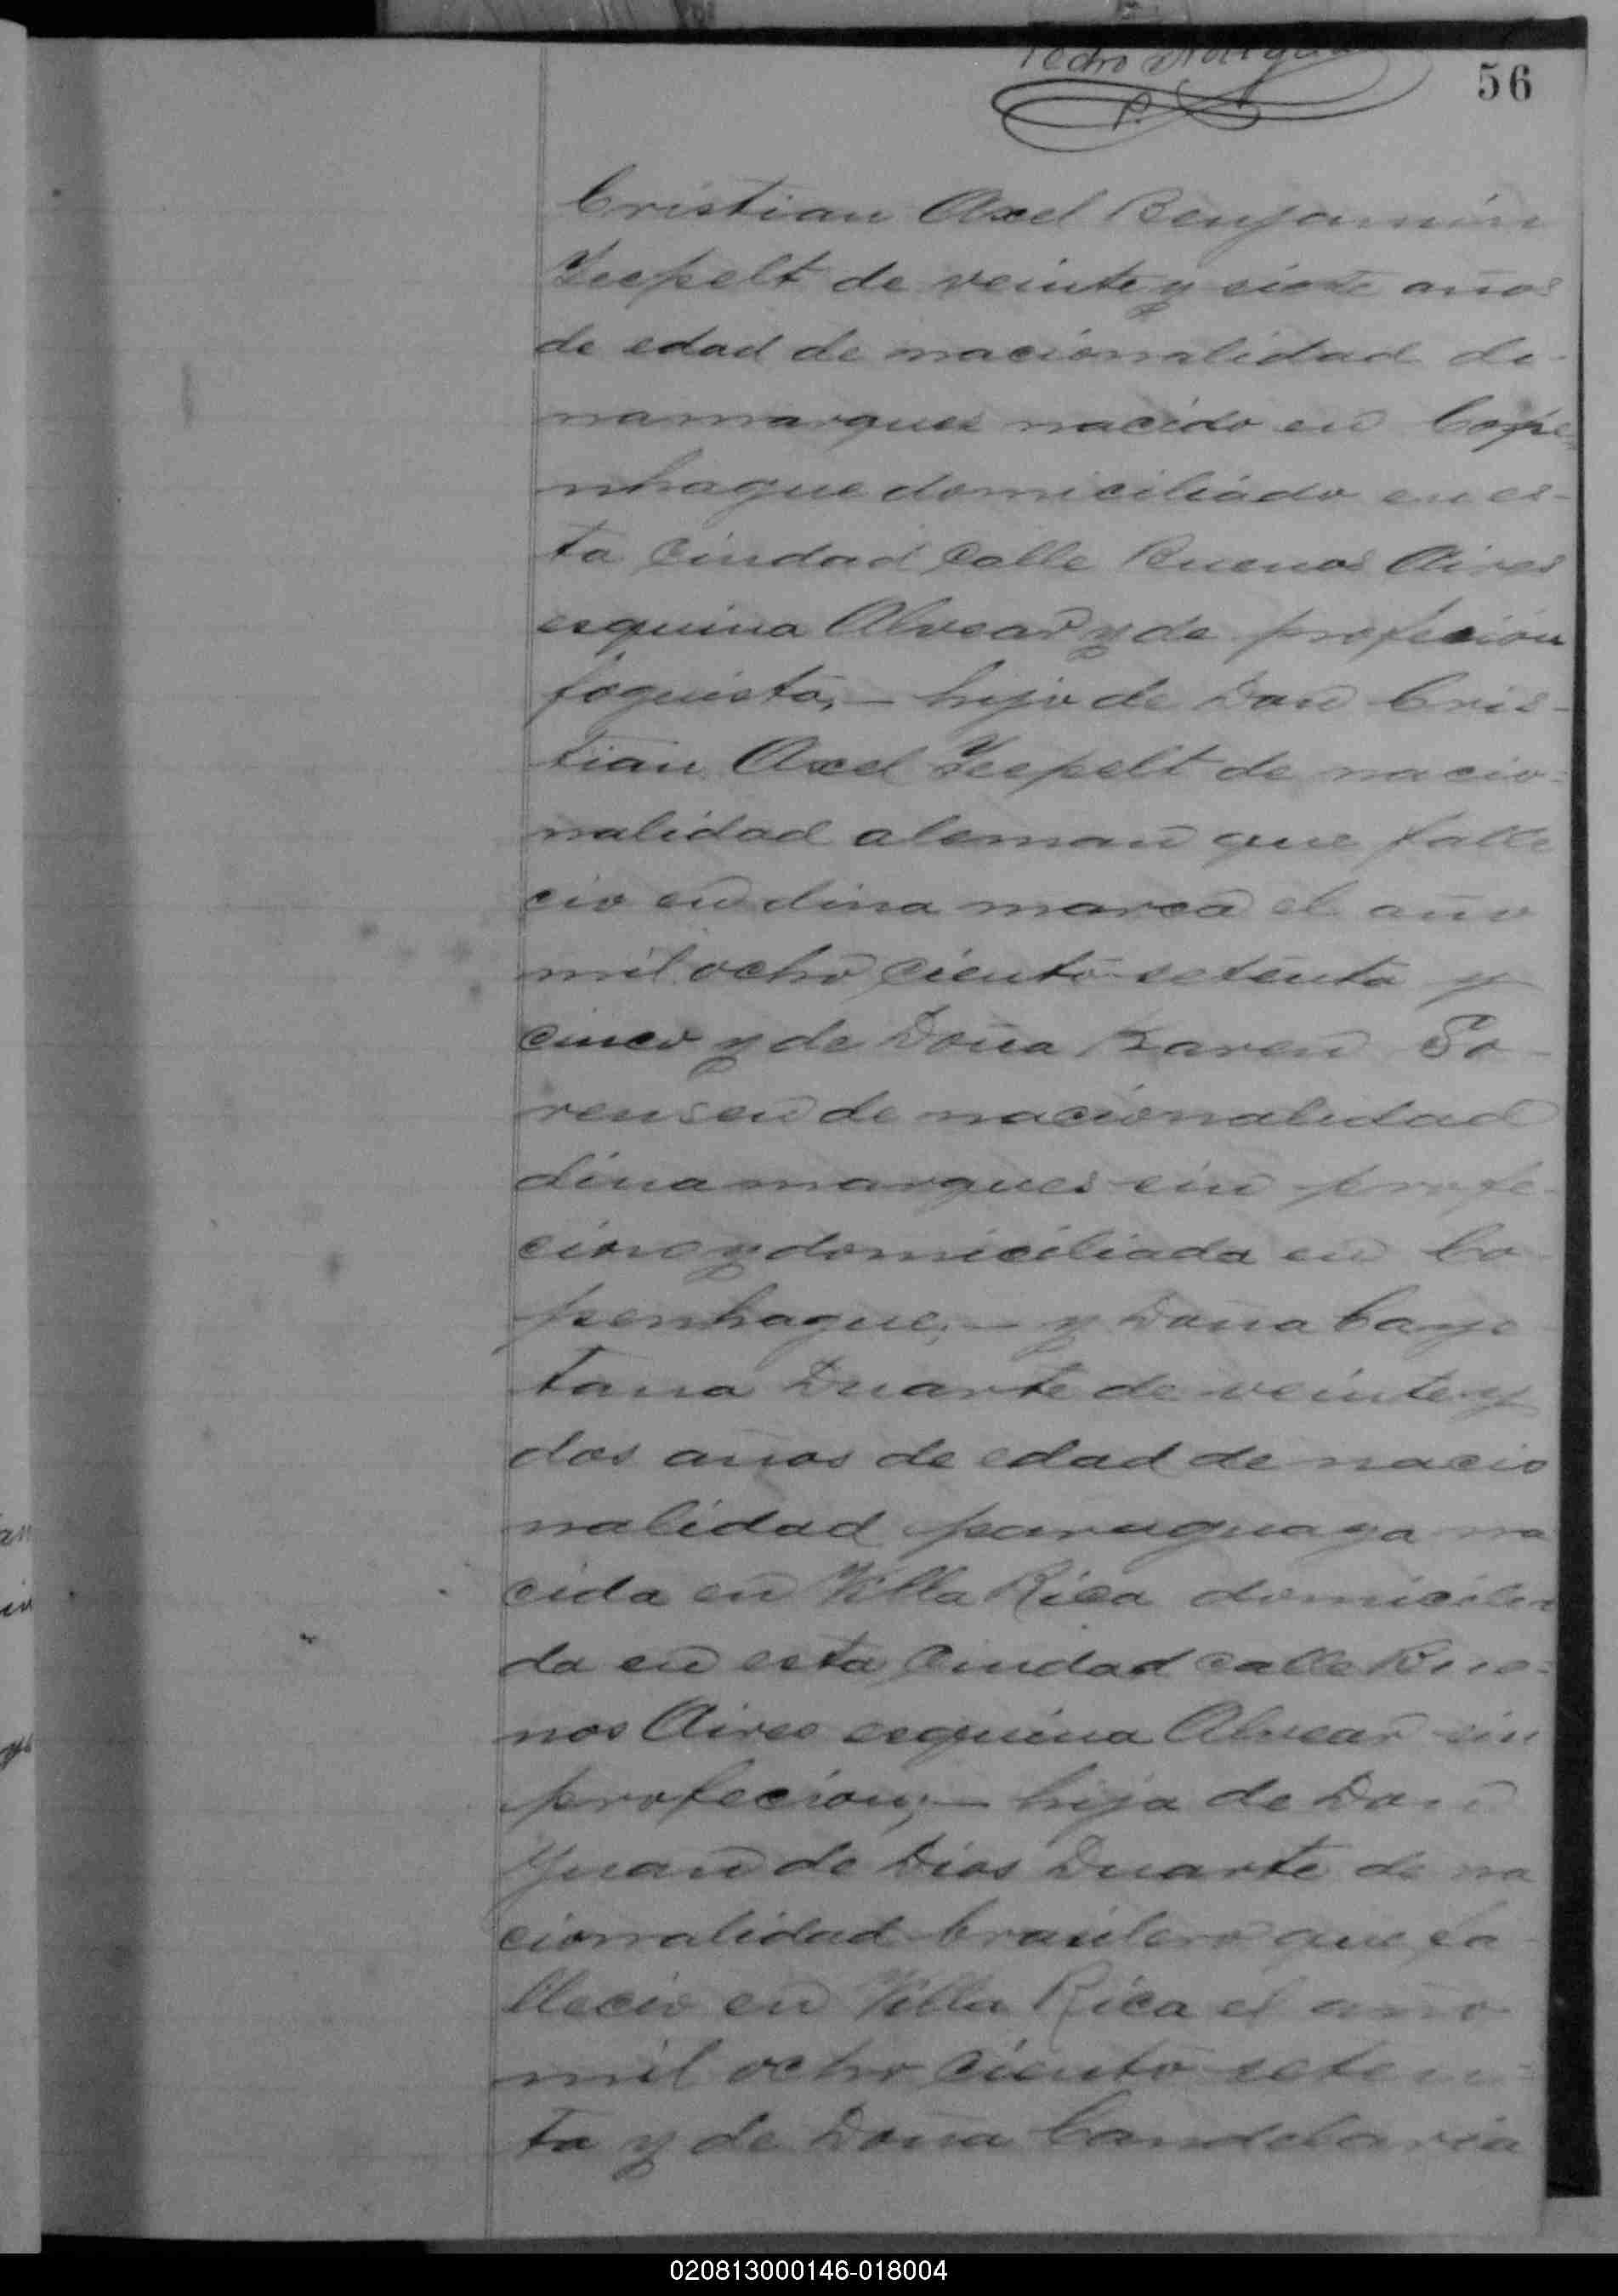 Pedro
P.
56
Cristian Axel Benjamin
Yeepelt de veinte y siete años
de edad de nacionalidad di-
namarques nacido en Cope
nhague domiciliado en es-
ta Ciudad Calle Buenos Aires
esquina Alvear y de profesion
foguista, — hijo de Don Cris-
tian Axel Yeepelt de nacio-
nalidad aleman que falle
cio en dina marca el año
mil ocho ciento setenta y
cinco y de Doña Karen So-
rensen de nacionalidad
dinamarques sin profe-
cion y domiciliada en Co
penhague; — y Doña Caye
tana Duarte de veinte y
dos años de edad de nacio
nalidad paraguaya na
cida en Villa Rica domicilia
da en esta Ciudad calle Bue-
nos Aires esquina Alvear sin
profecion; — hija de Don
Juan de Dios Duarte de na
cionalidad brasilero que fa
llecio en Villa Rica el año
mil ocho ciento seten-
ta y de Doña Candelaria
020813000146-018004